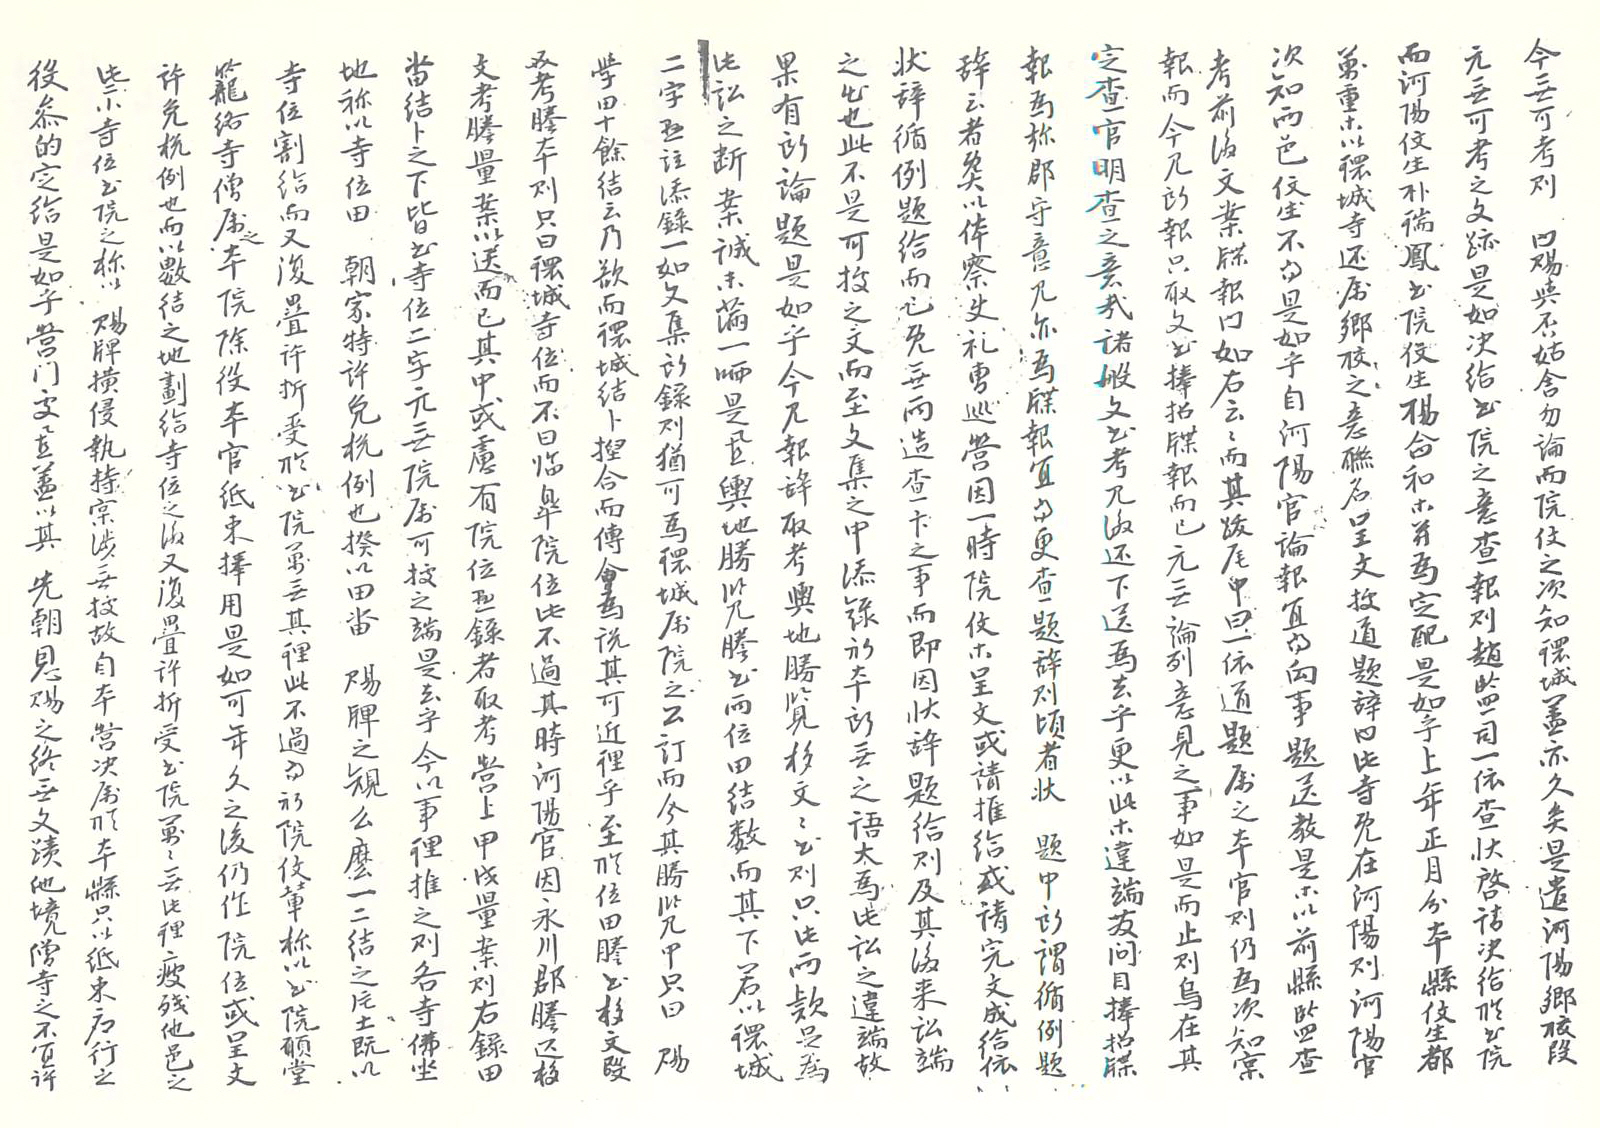 今無可考則 因賜與否姑舍勿論而院伩之次知環城盖亦久矣是遣河陽鄕校段
元無可考之文跡是如決給书院之意查報則趙監司一依查狀啓請決給於书院
而河陽伩生朴瑞鳳书院伩生楊命和等幷爲定配是如乎上年正月分本縣伩生都
萬重等以環城寺还属鄕校之意聯名呈文於道題辞內此寺旣在河陽則河陽官
次知而邑伩坐不當是如乎自河陽官論報宜當向事題送敎是等以前縣監查
考前後文案牒報內如右云云而其跋尾中曰一依道題属之本官則仍爲次知宗
報而今見所報只取文书捧招牒報而已元無論列意見之事如是而止則烏在其
定查官明查之意哉諸般文书考見後还下送爲去乎更以此等違端发问目捧招牒
報爲称郡守意見亦爲牒報宜當更查題辞則頃者狀 題中所謂循例題
辞云者奠以体察使礼曹巡营因一時院伩等呈文或請推給或請完文成給依
狀辞循例題給而已免無而造查卞之事而即因狀辞題給則及其後来訟端
之出也此不是可㨿之文而至文集之中添錄於本所無之語大爲此訟之違端故
果有所論題是如乎今見報辞取考輿地勝覽移文文书則只此而款足爲
此訟之断案誠未滿一哂是㫆輿地勝覧謄书而位田結数而其下若以環城
二字懸註添錄一如文集所錄則猶可爲環城属院之公訂而今其勝覧中只曰 賜
學田十餘結云乃欲而環城結卜揑合而傳會爲說其可近理乎至於位田謄书移文段
及考謄本則只曰環城寺位而不曰臨皐院位此不過其時河陽官因永川郡謄送移
文考謄量案以送而已其中或慮有院位懸錄者取考营上甲戌量案則右錄田
畓結卜之下皆书寺位二字元無院属可㨿之端是去乎今以事理推之則各寺佛坐
地称以寺位田 朝家特許免稅例也揆以田畓 賜牌之規么麽一二結之庄土旣以
寺位割給而又復疊許折受於书院萬無其理此不過當初院伩軰称以书院願堂
籠絡寺僧属之本院除役本官紙束捧用是如可年久之後仍作院位或呈文
許免稅例也而以數結之地劃給寺位之後又復疊許折受书院萬萬無此理疲残他邑之
些小寺位书院之称以 賜牌横侵執持宗涉無㨿故自本营决属於本縣只以紙束应行之
役叅的定給是如乎营门处置盖以其 先朝恩賜之終無文蹟他境僧寺之不宜許